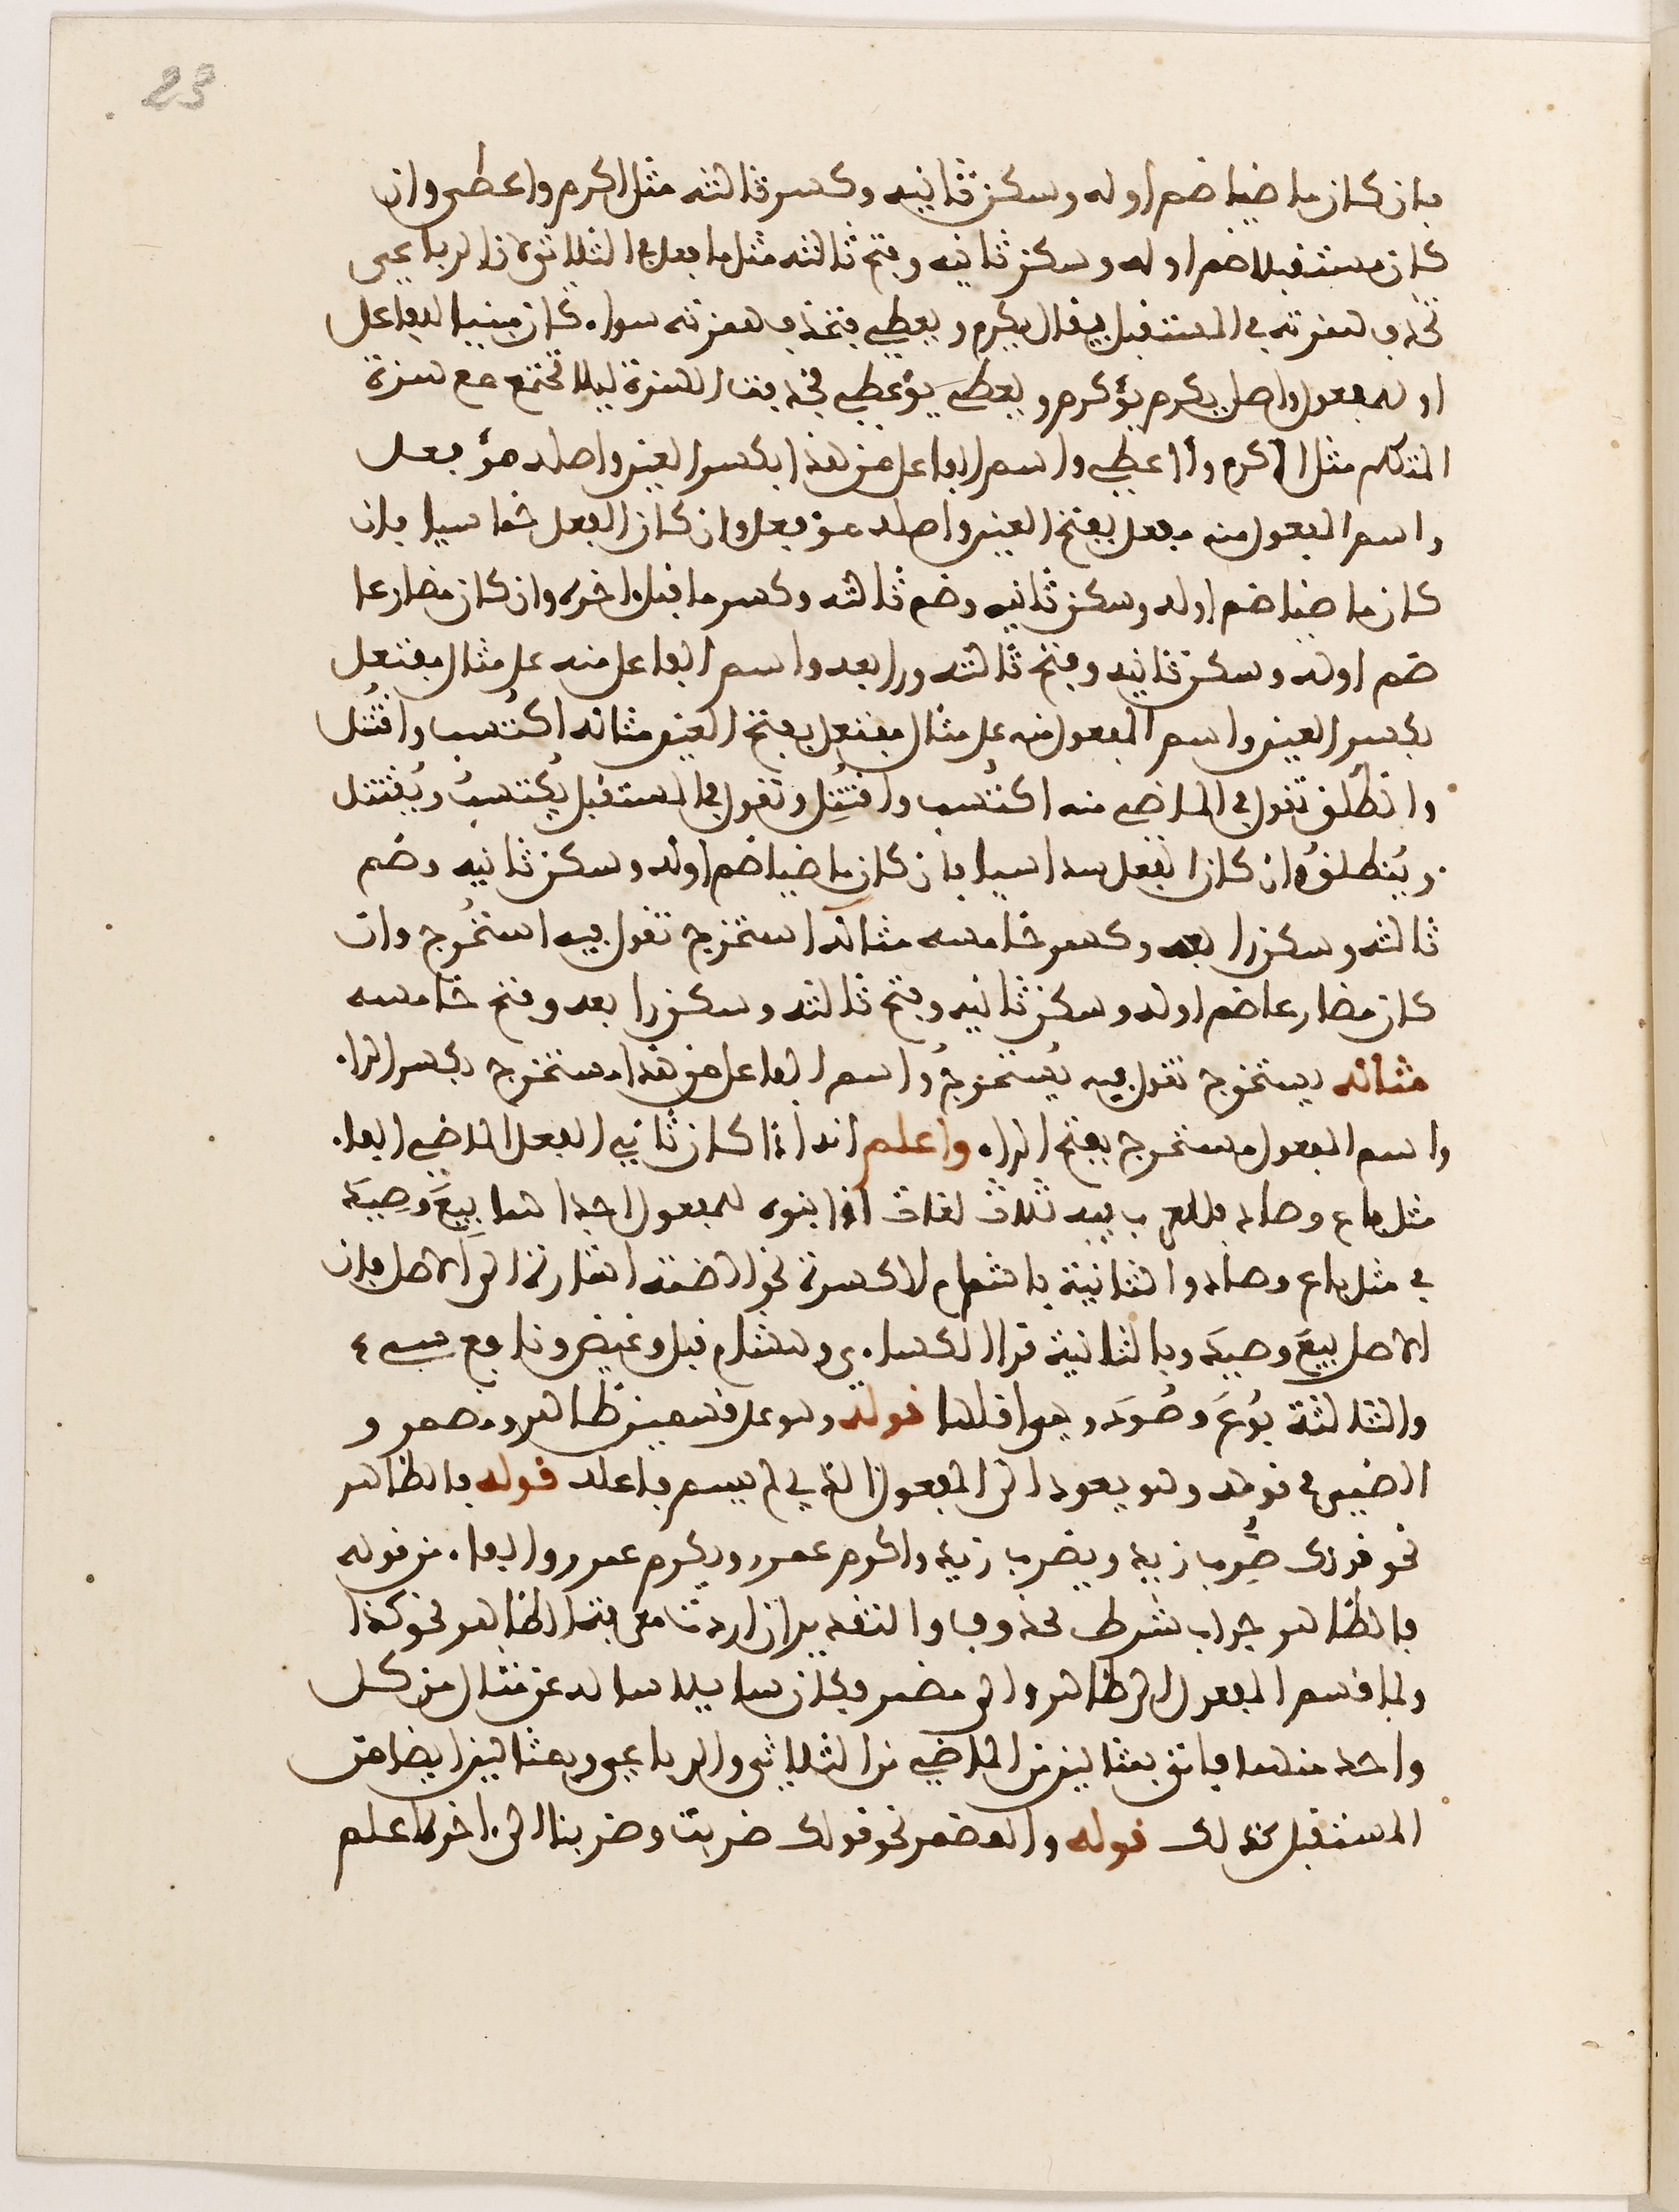 23
فان كان ماضيا ضم اوله وسكن ثانيه وكسر ثالثه مثل اكرم واعطى وان
كان مستقبلا ضم اوله وسكن ثانيه وفتح ثالثه مثل ما فعل في الثلاثي لان الرباعي
تحذف همزته في المستقبل فيقال يكرم ويعطي فتحذف همزته سواء كان مبنيا للفاعل
او للمفعول واصل يكرم يؤكرم ويعطي يؤعطي فحذفت الهمزة ليلا تجتمع مع همزة
المتكلم مثل أاكرم وأاعطي واسم الفاعل من هذا بكسر العين واصله مؤفعل
واسم المفعول منه مفعل بفتح العين واصله مؤفعل وان كان الفعل خماسيا فان
كان ماضيا ضم اوله وسكن ثانيه وضم ثالثه وكسر ما قبل اخره وان كان مضارعا
ضم اوله وسكن ثانيه وفتح ثالثه ورابعه واسم الفاعل منه على مثال مفتعل
بكسر العين واسم المفعول منه على مثال مفتعل بفتح العين مثاله اكتسب واقتتل
وانطلق تقول في الماضي منه اكتُسب واقتُتِل وتقول في المستقبل يُكتسبُ ويُقتتل
ويُنطلقُ وان كان الفعل سداسيا فان كان ماضيا ضم اوله وسكن ثانيه وضم
ثالثه وسكن رابعه وكسر خامسه مثاله استخرج تقول فيه استُخرج وان
كان مضارعا ضم اوله وسكن ثانيه وفتح ثالثه وسكن رابعه وفتح خامسه
مثاله يستخرج تقول فيه يُستخرجُ واسم الفاعل من هذا مستخرج بكسر الراء
واسم المفعول مستخرج بفتح الراء واعلم انه اذا كان ثاني الفعل الماضي الفا
مثل باع وصاد فللعرب فيه ثلاث لغات اذا بنوه للمفعول احداهما بِيعَ وصِيدَ
في مثل باع وصاد والثانية باشمام الكسرة نحو الضمة اشارة الى الاصل فان
الاصل بيعَ وصيدَ وبالثانية قرا الكساءي وهشام قيل وغيض ونافع سيء
والثالثة بُوعَ وصُودَ وهي اقلها قوله وهو على قسمين ظاهر ومضمر و
الضمير في قوله وهو يعود الى المفعول الذي لم يسم فاعله قوله فالظاهر
نحو قولك ضُرِب زيد ويضرب زيد واكرم عمرو ويكرم عمرو والفاء من قوله
فالظاهر جواب شرط محذوف والتقدير ان اردت معرفة الظاهر نحو كذا
ولما قسم المفعول الى ظاهر والى مضمر وكان سايلا ساله عن مثال من كل
واحد منهما فاتى بمثالين من الماضي من الثلاثي والرباعي وبمثالين ايضا من
المستقبل كذلك قوله والمضمر نحو قولك ضربت وضربنا الى اخره اعلم